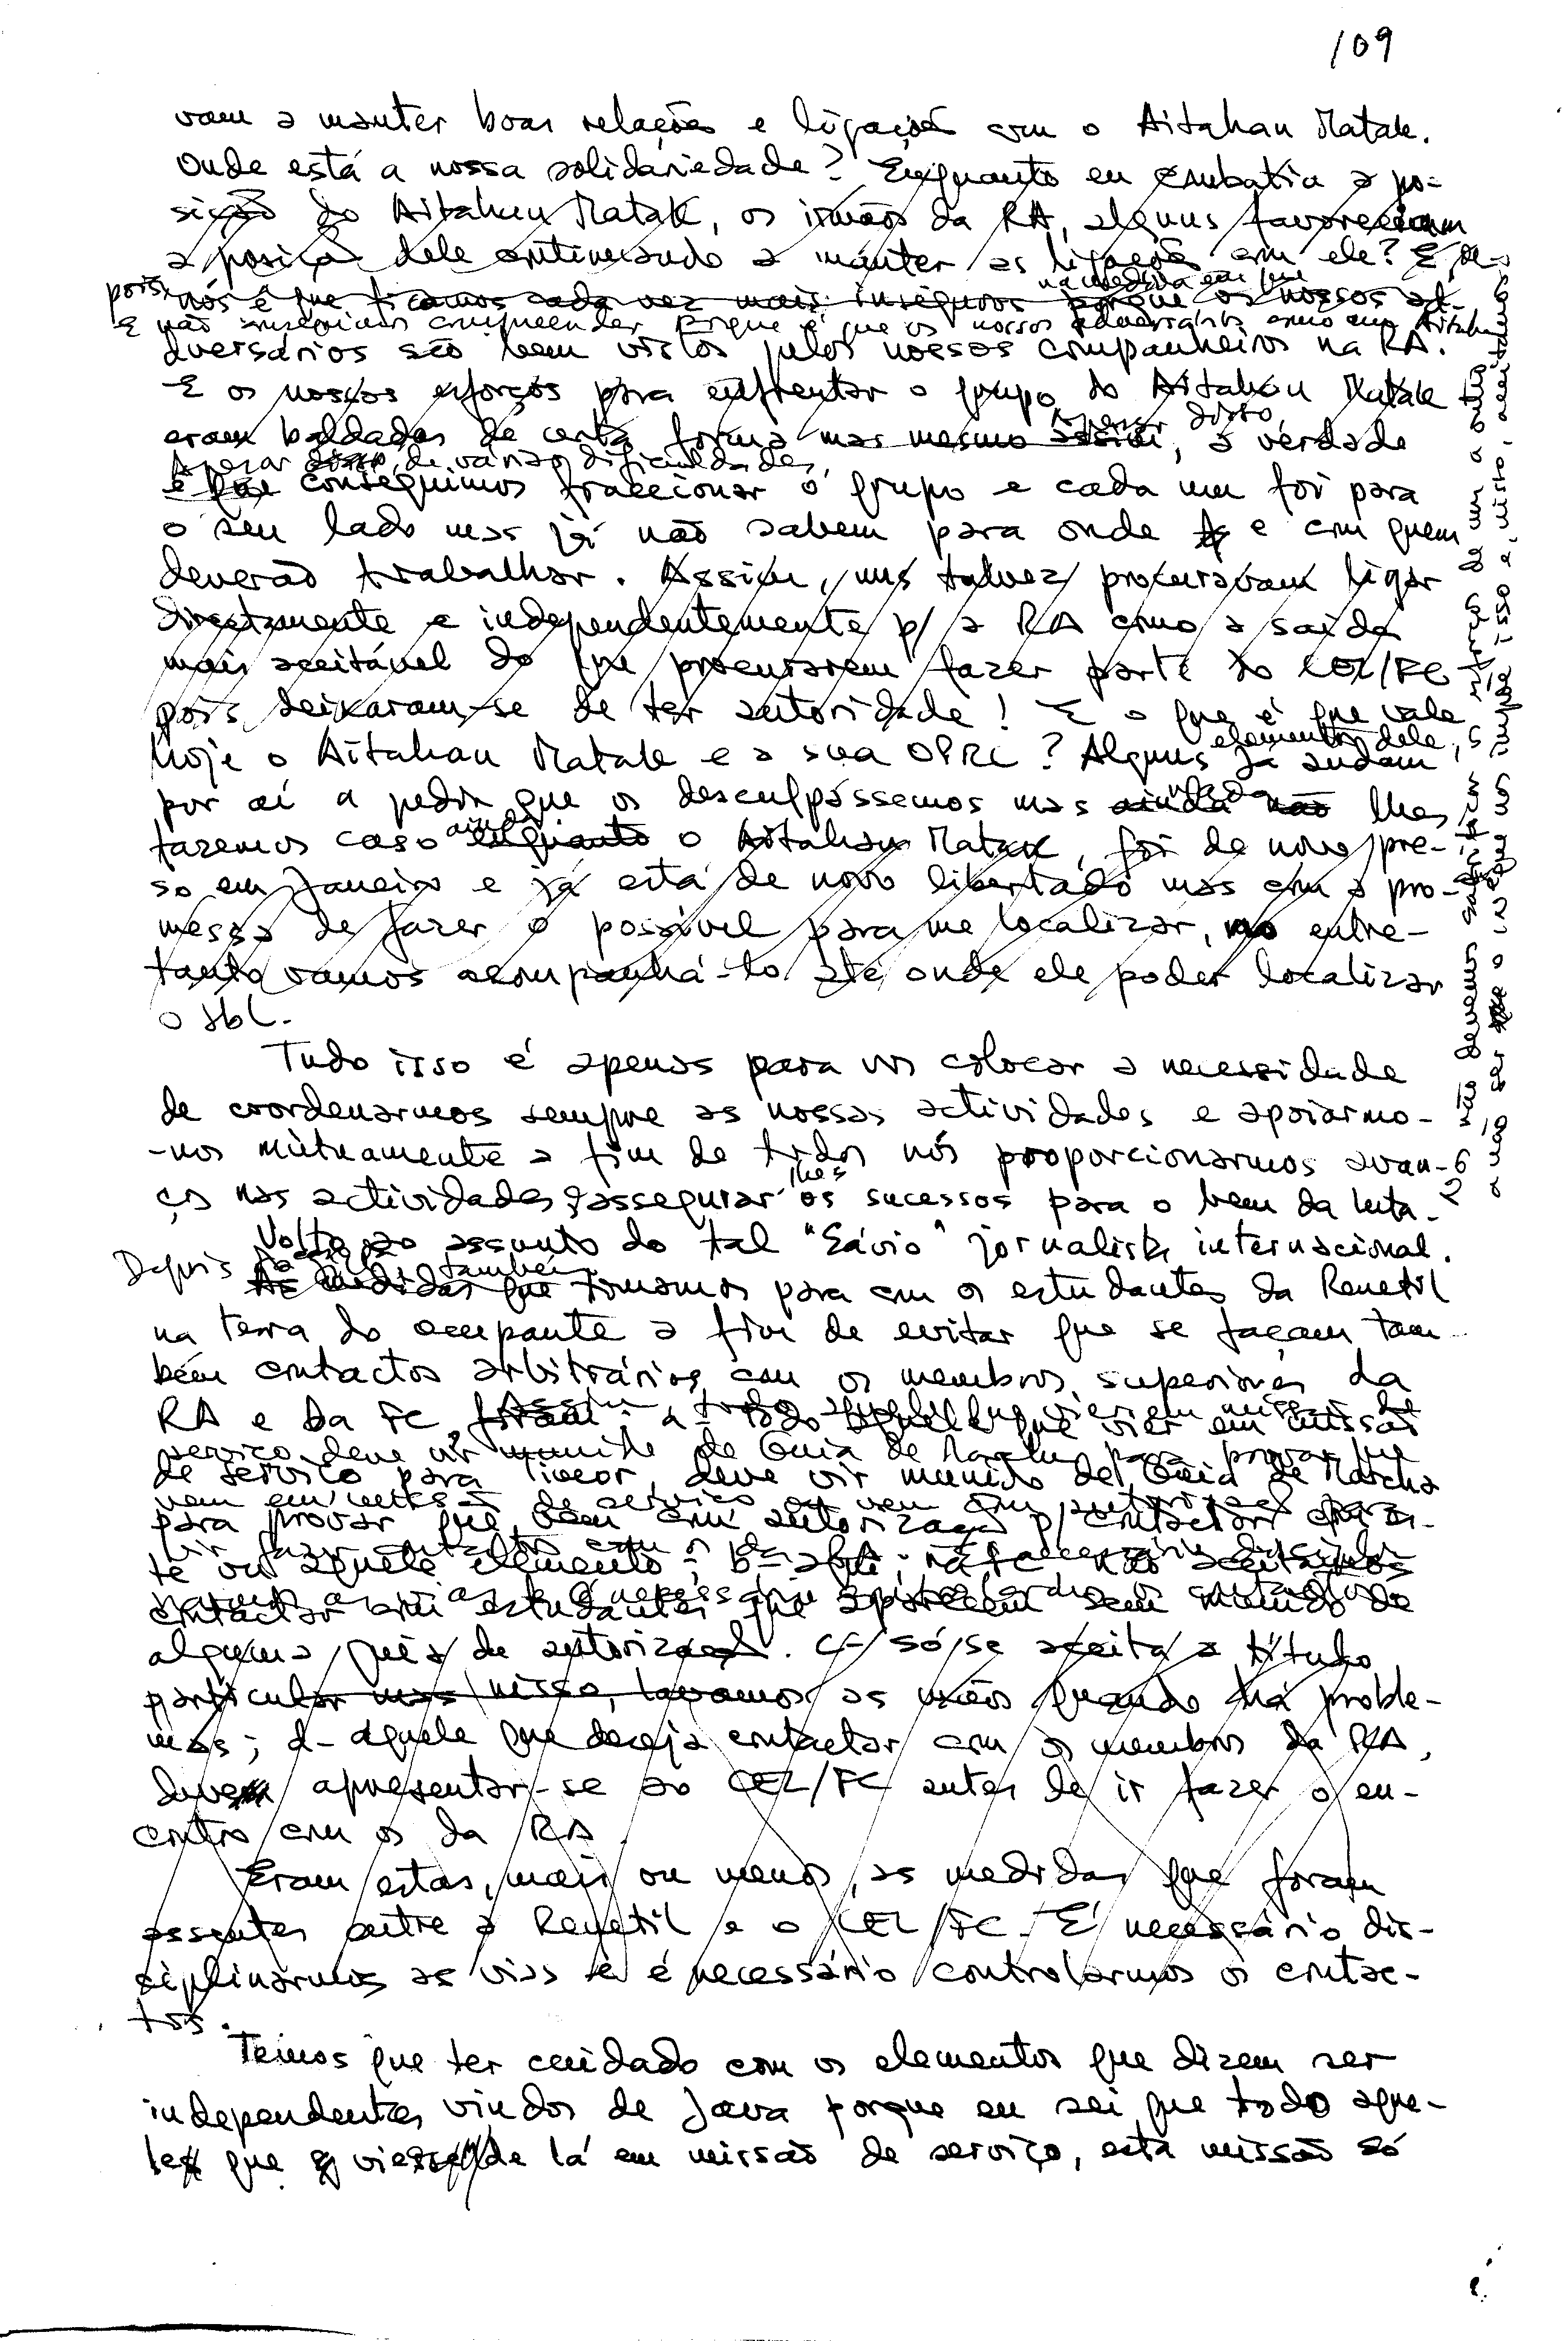 109
vam a manter boas relações e ligações com o Aitahan Matak.
Onde está a nossa solidariedade? Enquanto eu combatia a po-
sição do Aitahan Matak, os irmãos da RA, alguns favoreciam
a posição dele continuando a manter as ligações com ele? E de-
pois, nós é que ficamos cada vez mais inseguros porque os nossos ad-
na medida em que
E não conseguimos compreender porque é que os nossos adversários como um Aitahan
dversários são bem vistos pelos nossos companheiros na RA.
E os nossos esforços para enfrentar o grupo do Aitahan Matak
eram baldados de certa forma mas mesmo assim, a verdade
apesar disto
Apesar disso, de várias dificuldades,
é que conseguimos fraccionar o grupo e cada um foi para
o seu lado mas já não sabem para onde e com quem
deverão trabalhar. Assim, uns talvez procuravam ligar
directamente e independentemente p/ a RA como a saída
mais aceitável do que procurarem fazer parte do CEL/FC
pois deixaram-se de ter autoridade! E o que é que vale
hoje o Aitahan Matak e a sua OPRC? Alguns elementos dele, já andam
por aí a pedir que os desculpássemos mas ainda não lhes
fazemos caso enquanto o Aitahan Matak, foi de novo pre-
ainda
so em Janeiro e já está de novo libertado mas com a pro-
messa de fazer o possível para me localizar, no entre-
tanto vamos acompanhá-lo até onde ele poder localizar
o
Tudo isso é apenas para vos colocar a necessidade
de coordenarmos sempre as nossas actividades e apoiarmo-
-nos mùtuamente a fim de todos nós proporcionarmos avan-
ços nas actividades, assegurar-lhes os sucessos para o bem da luta.
não devemos sacrificar os esforços de um a outro
a não ser que o inimigo nos impõe isso e, nisto, aceitamos
Volto ao assunto do tal "Sávio" jornalista internacional.
Depois
também
As medidas que tomamos para com os estudantes da Renetil
na terra do ocupante a fim de evitar que se façam tam-
bém contactos arbitrários com os membros superiores da
RA e da FC, foram: a- todo aquele que vier em missão
serviço deve vir munido de Guia de Marcha para provar que
de serviço para Timor, deve vir munido de Guia de Marcha
vem em missão de serviço ou vem com autorização para
para provar que vem com autorização p/ contactar com es-
te ou aquele elemento; b- a FC não aceitamos
contactar com estudantes que aparecem sem munido de
alguma guia de autorização. c- só se aceita a título
particular mas nisso, lavamos as mãos quando há proble-
mas; d- aquele que deseja contactar com os membros da RA,
deve apresentar-se ao CEL/FC antes de ir fazer o en-
contro com os da RA.
Eram estas, mais ou menos, as medidas que foram
assentes entre a Renetil e o CEL/FC. É necessário dis-
ciplinarmos as vias e é necessário controlarmos os contac-
tos.
Temos que ter cuidado com os elementos que dizem ser
independentes vindos de Java porque eu sei que todo aque-
les que vier de lá em missão de serviço, esta missão só